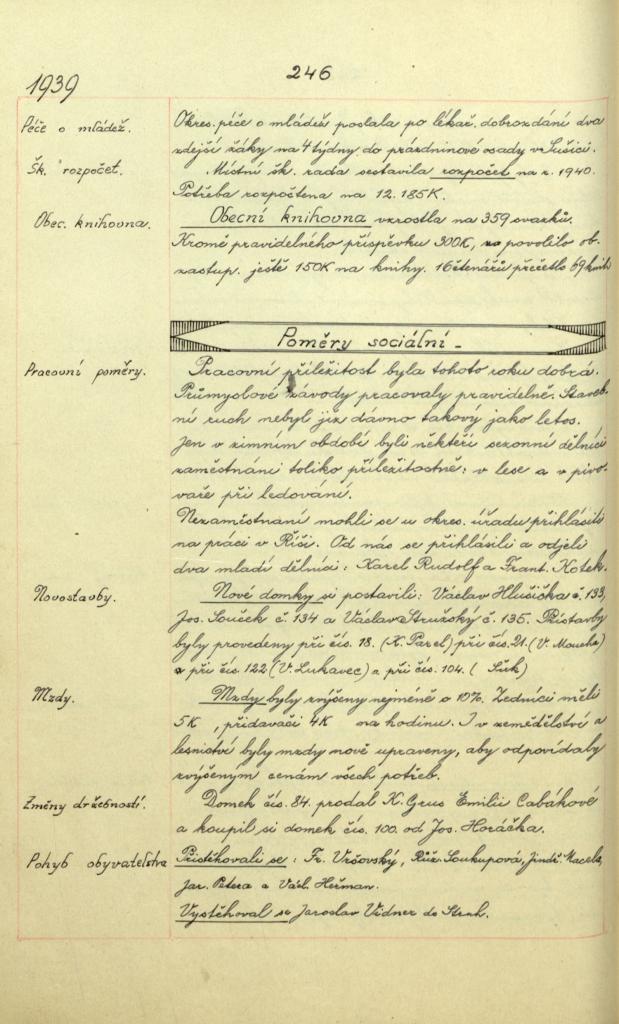 246
1939
Péče o mládež.
Okres. péče o mládež poslala po lékař. dobrozdání dva
zdejší žáky na 4 týdny do prázdninové osady v Sušici.
Šk. rozpočet.
Místní šk. rada sestavila rozpočet na r. 1940.
Potřeba rozpočtena na 12.185K.
Obec. knihovna.
Obecní knihovna vzrostla na 359 svazků.
Kromě pravidelného příspěvku 300K, povolilo ob.
zastup. ještě 150K na knihy. 16 čtenářů přečetlo 69 knih
Poměry sociální -
Pracovní poměry.
Pracovní příležitost byla tohoto roku dobrá.
Průmyslové závody pracovaly pravidelně. Staveb-
ní ruch nebyl již dávno takový jako letos.
Jen v zimním období byli někteří sezonní dělníci
zaměstnáni toliko příležitostně: v lese a v pivo-
vaře při ledování.
Nezaměstnaní mohli se u okres. úřadu přihlásiti
na práci v Říši. Od nás se přihlásili a odjeli
dva mladí dělníci: Karel Rudolf a Frant. Kotek.
Novostavby.
Nové domky si postavili: Václav Hlušička č. 133,
Jos. Souček č. 134 a Václav Stružský č. 135. Přístavby
byly provedeny při čís. 18. (K. Parel) při čís. 21. (V. Moucha)
a při čís. 122 (V. Lukavec) a při čís. 104. (
Mzdy.
Mzdy byly zvýšeny nejméně o 10%. Zedníci měli
5K, přidavači 4K na hodinu. I v zemědělství a
lesnictví byly mzdy nově upraveny, aby odpovídaly
zvýšeným cenám všech potřeb.
Změny držebností.
Domek čís. 84. prodal K. Emilii Cabákové
a koupil si domek čís. 100. od Jos. Horáčka.
Pohyb obyvatelstva
Přistěhovali se: Fr. Vršovský, Růž. Soukupová, Jindř. Macek,
Jar. Petera a Václ. Heřman.
Vystěhoval se Jaroslav Vidner do